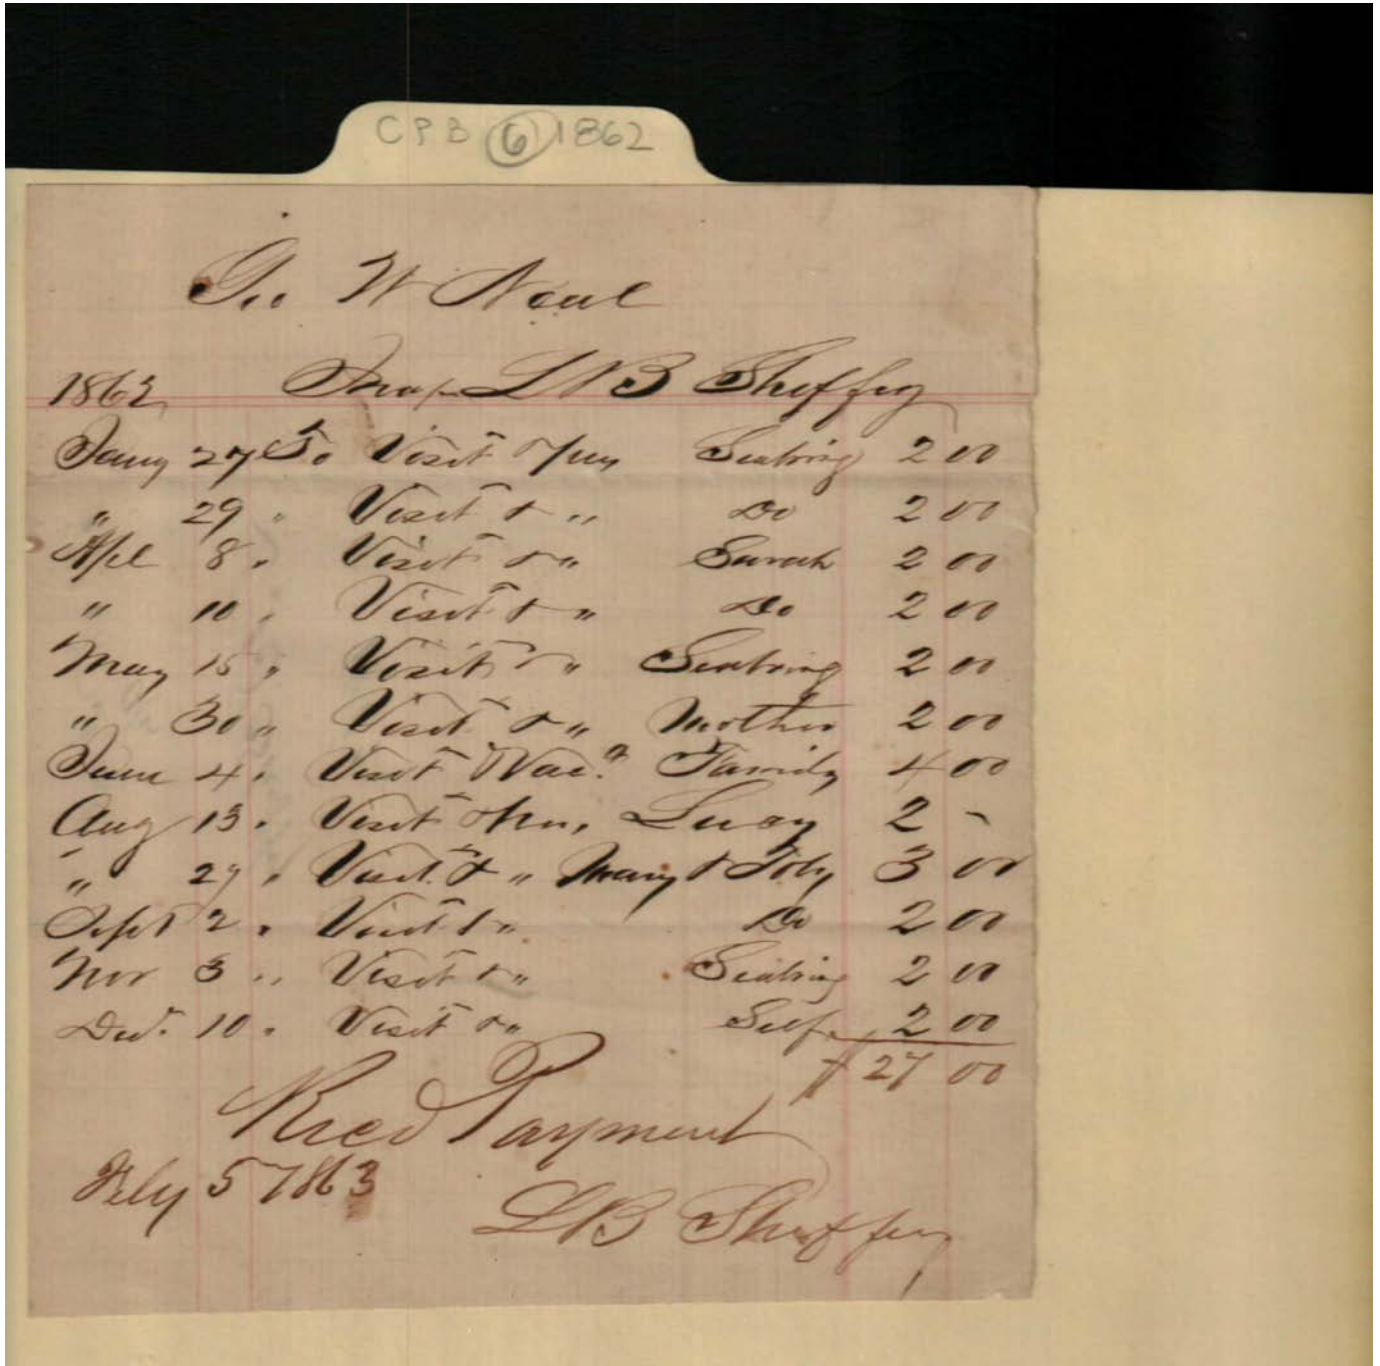 CPB 6 1862
Geo W Neal
1862 L B Sheffey
Jany 27 To Visit Seabring 2 00
" 29 " Visit & " Do 2 00
Apl 8 " Visit & " Sarah 2 00
" 10 " Visit & " Do 2 00
May 15 " Visit & " Seabring 2 00
" 30 " Visit & " Mother 2 00
June 4 " Visit Family 4 00
Aug 13 " Visit Lucy 2 -
" 27 " Visit & " Mary & 3 00
Sept 2 " Visit & " Do 2 00
Nov 3 " Visit & " Seabring 2 00
Dec. 10 " Visit & " Self 2 00
$ 27 00
Recd Payment
Feby 5 1863
L B Sheffey